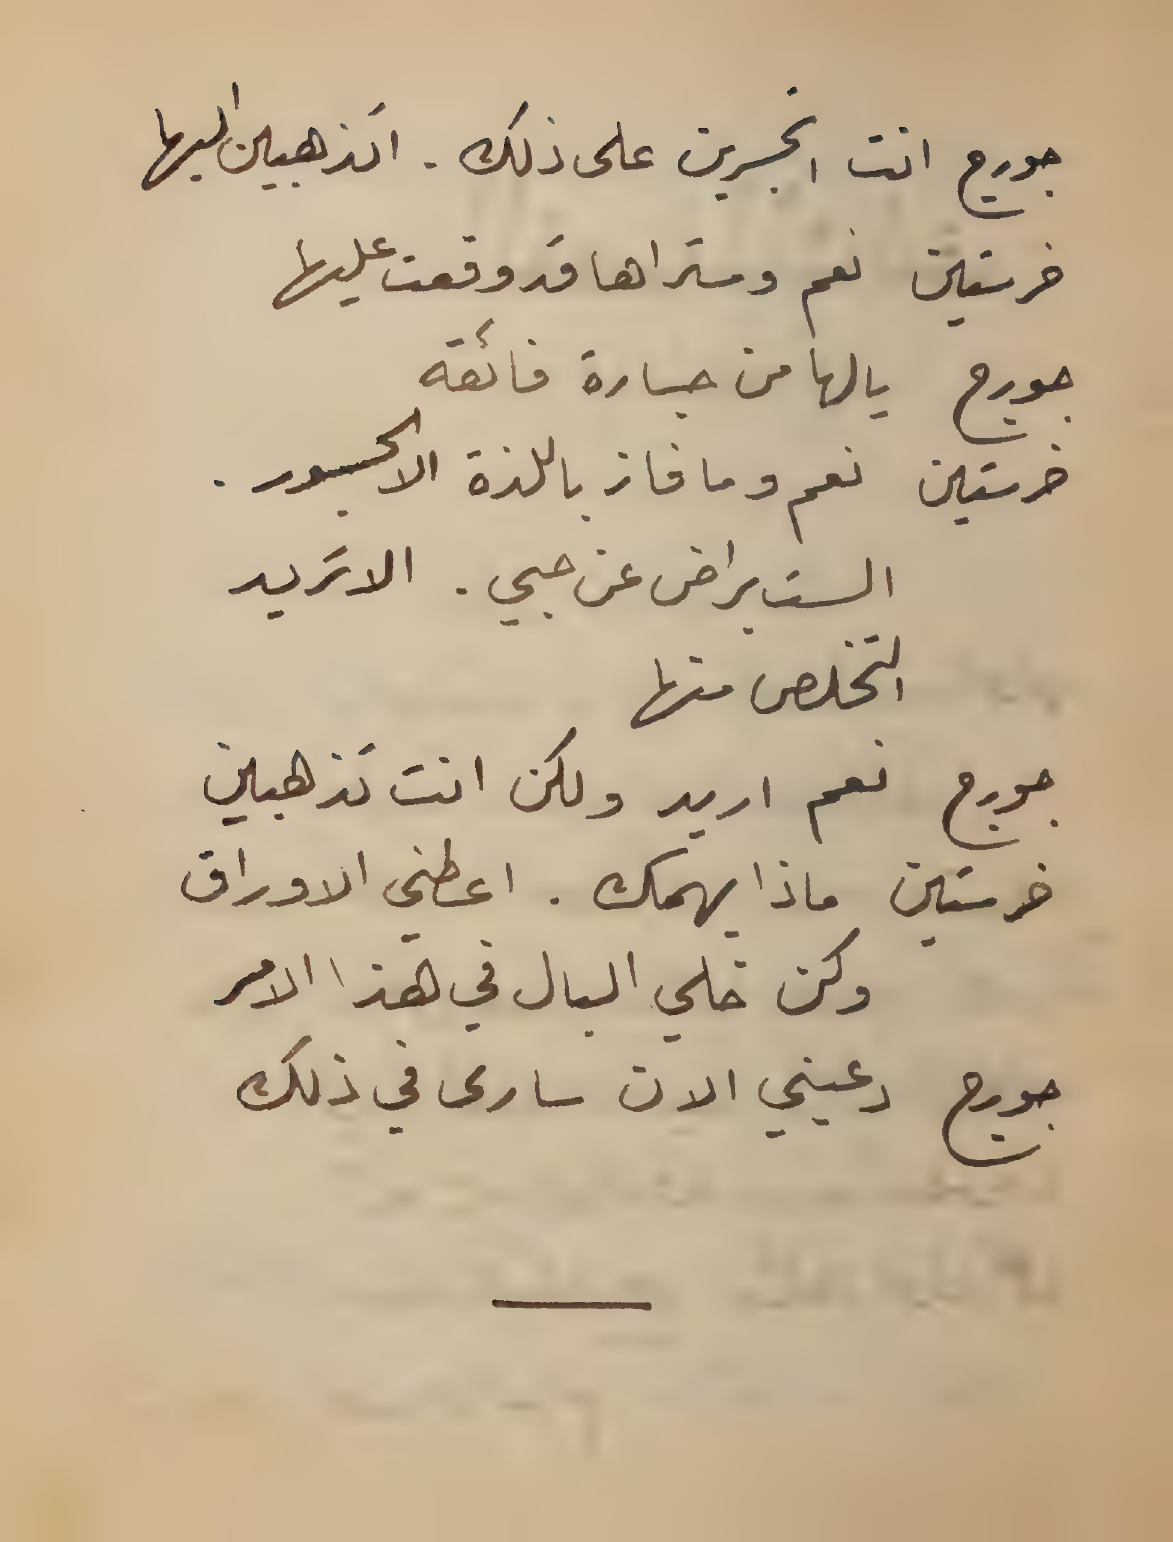 جورج انت اتجسرين على ذلك . اتذهبين اليها
خرستين نعم وستراها قد وقعت عليها
جورج يالها من جسارة فائقة
خرستين نعم وما فاز باللذة الا الجسور .
الست براض عن حبي . الا تريد
التخلص منها
جورج نعم اريد ولكن انت تذهبين
خرستين ماذا يهمك . اعطني الاوراق
وكن خلي البال في هذا الامر
جورج دعيني الان سارى في ذلك